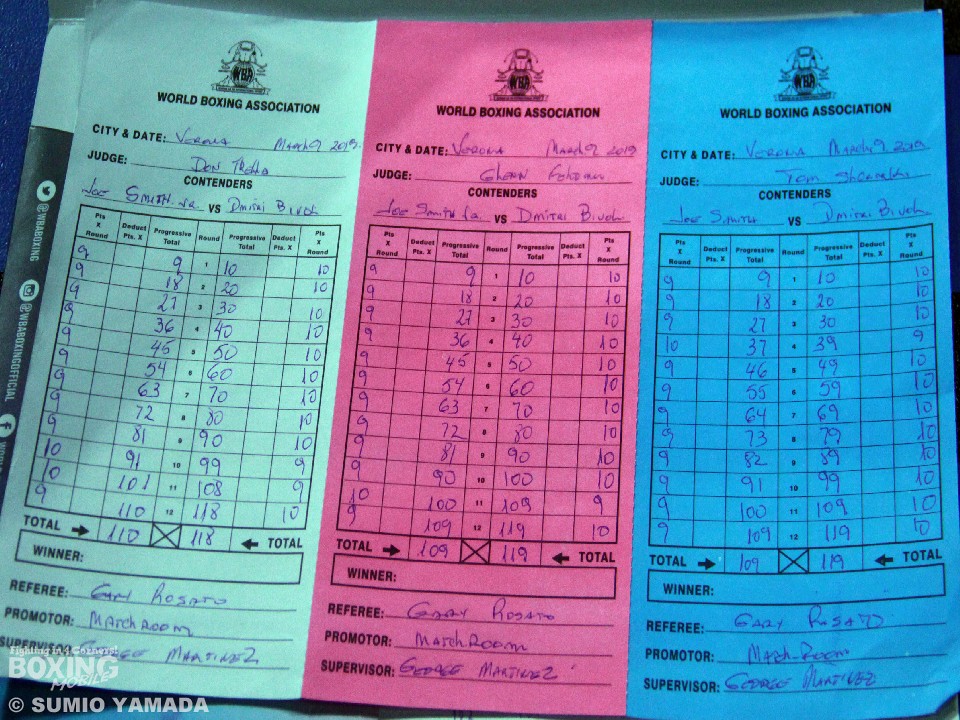 WBA
WORLD BOXING ASSOCIATION
CITY & DATE: Verona March 9 2019
JUDGE: Don Trella
CONTENDERS
Joe Smith Jr. VS Dmitri Bivol
Pts X Round Deduct Pts. X Progressive Total Round Progressive Total Deduct Pts. X Pts X Round
9 9 1 10 10
9 18 2 20 10
9 27 3 30 10
9 36 4 40 10
9 45 5 50 10
9 54 6 60 10
9 63 7 70 10
9 72 8 80 10
9 81 9 90 10
10 91 10 99 9
10 101 11 108 9
9 110 12 118 10
TOTAL 110 118 TOTAL
WINNER:
REFEREE: Gary Rosato
PROMOTOR: Matchroom
SUPERVISOR: George Martinez
WBA
WORLD BOXING ASSOCIATION
CITY & DATE: Verona March 9 2019
JUDGE: Glenn Feldman
CONTENDERS
Joe Smith Jr. VS Dmitri Bivol
Pts X Round Deduct Pts. X Progressive Total Round Progressive Total Deduct Pts. X Pts X Round
9 9 1 10 10
9 18 2 20 10
9 27 3 30 10
9 36 4 40 10
9 45 5 50 10
9 54 6 60 10
9 63 7 70 10
9 72 8 80 10
9 81 9 90 10
9 90 10 100 10
10 100 11 109 9
9 109 12 119 10
TOTAL 109 119 TOTAL
WINNER:
REFEREE: Gary Rosato
PROMOTOR: Matchroom
SUPERVISOR: George Martinez
WBA
WORLD BOXING ASSOCIATION
CITY & DATE: Verona March 9 2019
JUDGE: Tom
CONTENDERS
Joe Smith VS Dmitri Bivol
Pts X Round Deduct Pts. X Progressive Total Round Progressive Total Deduct Pts. X Pts X Round
9 9 1 10 10
9 18 2 20 10
9 27 3 30 10
10 37 4 39 9
9 46 5 49 10
9 55 6 59 10
9 64 7 69 10
9 73 8 79 10
9 82 9 89 10
9 91 10 99 10
9 100 11 109 10
9 109 12 119 10
TOTAL 109 119 TOTAL
WINNER:
REFEREE: Gary Rosato
PROMOTOR: Match-Room
SUPERVISOR: George Martinez
@WBABOXING
@WBABOXINGOFFICIAL
Fighting in 4 Corners!
BOXING
MOBILE
© SUMIO YAMADA